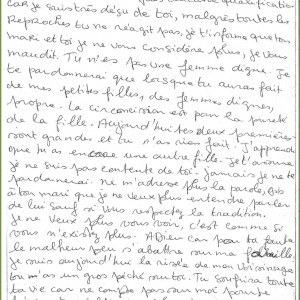 qualification
car je suis très déçu de toi, malgrès toutes les
Reproches tu ne réagit pas, je t'informe que ton
mari et toi je ne vous considère plus, je vous
maudit. Tu n'es pas une femme digne. Je
te pardonnerai que lorsque tu auras fait
de mes petites filles, des femmes dignes,
propre. La circoncision est pour la pureté
de la fille. Aujourd'hui tes deux premières
sont grandes et tu n'as rien fait. J'apprends
que tu as encore une autre fille. Je t'avoue
je ne suis pas contente de toi. jamais je ne te
pardonerai. ne m'adresse plus la parole, dis
à ton mari que je ne veux plus entendre parler
de lui sauf si vous respectez la tradition.
je ne veux plus vous voir, c'est comme si
vous n'existez plus. Adieu car par ta faute
le malheur peu s'abattre sur ma famille
je suis aujourd'hui la risée de mon voisinage
tu m'as un gros péché sur toi. Tu souffrira toute
ta vie car ne compte pas sur moi pour